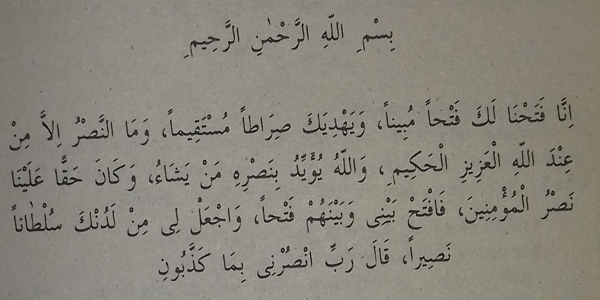 بِسْمِ اللّٰهِ الرَّحْمٰنِ الرَّحِيمِ
اِنَّا فَتَحْنَا لَكَ فَتْحاً مُبِيناً، وَيَهْدِيَكَ صِرَاطاً مُسْتَقِيماً، وَمَا النَّصْرُ اِلاَّ مِنْ
عِنْدَ اللّٰهِ الْعَزِيزِ الْحَكِيمِ، وَاللّٰهُ يُؤَيِّدُ بِنَصْرِهِ مَنْ يَشَاءُ، وَكَانَ حَقًّا عَلَيْنَا
نَصْرُ الْمُؤْمِنِينَ، فَافْتَحْ بَيْنِى وَبَيْنَهُمْ فَتْحاً، وَاجْعَلْ لِى مِنْ لَدُنْكَ سُلْطَاناً
نَصِيراً، قَالَ رَبِّ انْصُرْنِى بِمَا كَذَّبُونِ